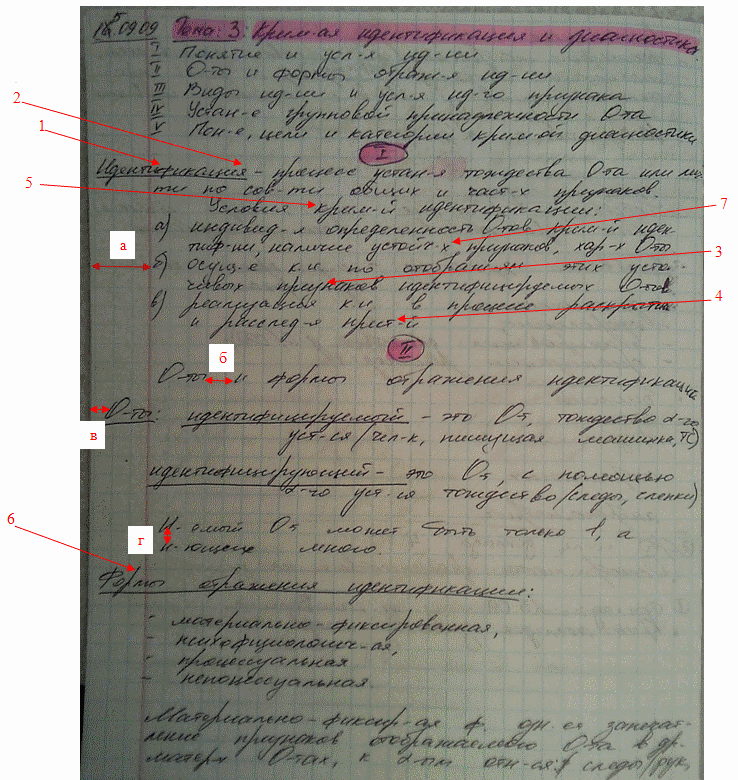 18.09.09 Тема: 3. Крим-ая идентификация и диагностика.
I Понятие и усл-я ид-ии
II О-ты и формы отраж-я ид-ии
III Виды ид-ии и усл-я ид-го признака
IV Устан-е групповой принадлежности О-та
V Пон-е, цели и категории крим-ой диагностики
I
Идентификация – процесс устан-я тождества О-та или ли-
ти по сов-ти общих и част-х признаков.
Условия крим-й идентификации:
а) индивид-я определенность О-тов крим-й иден-
тиф-ии, наличие устойч-х признаков, хар-х О-ты
б) осущ-е к.и. по отображ-ям этих устой-
чивых признаков идентифицируемых О-тов
в) реализация к.и. в процессе раскрытия
и расслед-я прест-й
II
О-ты и формы отражения идентификации
О-ты: идентифицируемый – это От, тождество α-го
уст-ся (чел-к, пишущая машинка, ТС)
идентифицирующий – это От, с помощью
α-го уст-ся тождество (следы, слепки)
И-емый От может быть только 1, а
и-ющих много.
Формы отражения идентификации:
- материально-фиксированная,
- психофизиологич-ая,
- процессуальная
- непоцессуальная.
Материально-фиксир-ая ф. одн-ся запечат-
ление признаков отображаемого О-та в др.
матер-х О-тах, к α-ым отн-ся: следы (рук,
2
1
5
7
3
4
6
а
б
в
г